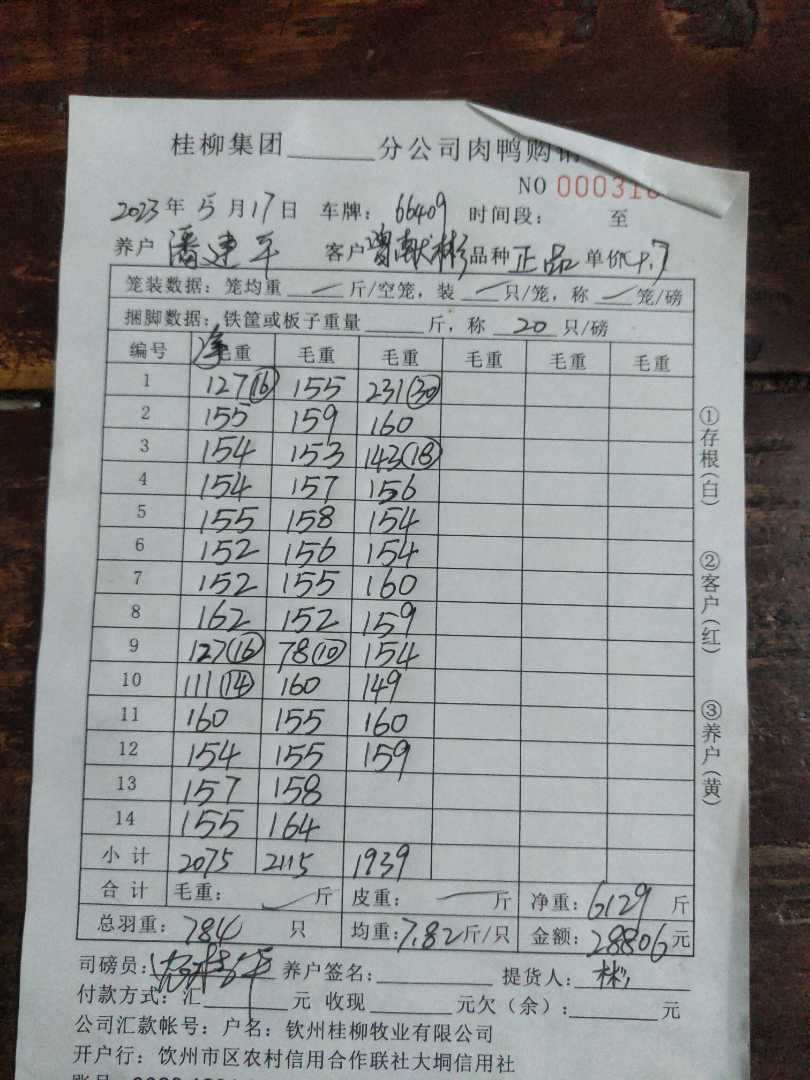 桂柳集团______分公司肉鸭购销
NO 000316
2023年5月17日 车牌：66409 时间段： 至
养户 潘建平 客户 曾献彬 品种 正品 单价4.7
笼装数据：笼均重 — 斤/空笼，装 — 只/笼，称 — 笼/磅
捆脚数据：铁筐或板子重量______斤，称 20 只/磅
编号 净毛重 毛重 毛重 毛重 毛重 毛重
1 127(16) 155 231(30)
2 155 159 160
3 154 153 143(18)
4 154 157 156
5 155 158 154
6 152 156 154
7 152 155 160
8 162 152 159
9 127(16) 78(10) 154
10 111(14) 160 149
11 160 155 160
12 154 155 159
13 157 158
14 155 164
小计 2075 2115 1939
合计 毛重： — 斤 皮重： — 斤 净重：6129 斤
总羽重：784 只 均重：7.82斤/只 金额：28806元
司磅员： 养户签名： 提货人：彬
付款方式：汇______元 收现______元欠（余）：______元
公司汇款帐号：户名：钦州桂柳牧业有限公司
开户行：饮州市区农村信用合作联社大垌信用社
①存根(白)
②客户(红)
③养户(黄)